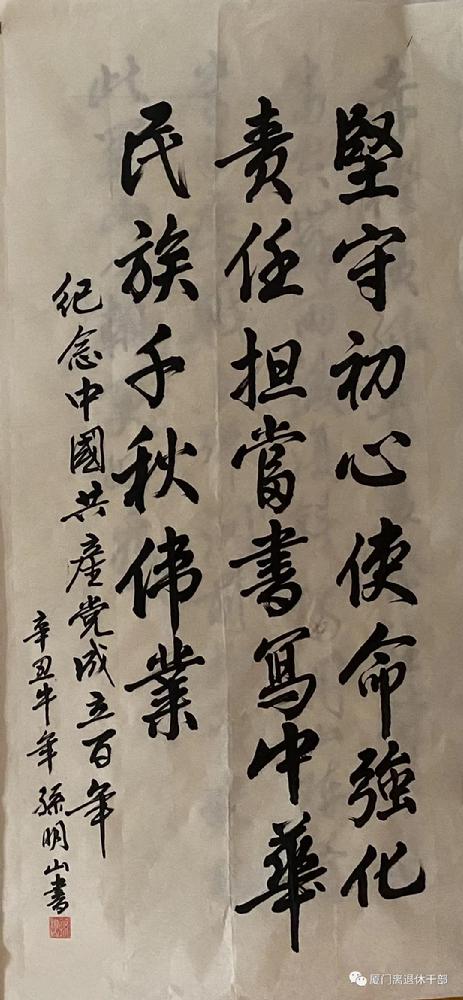 堅守初心使命強化
責任担當書寫中華
民族千秋偉業
紀念中國共產党成立百年
辛丑牛年孫明山書
厦门离退休干部